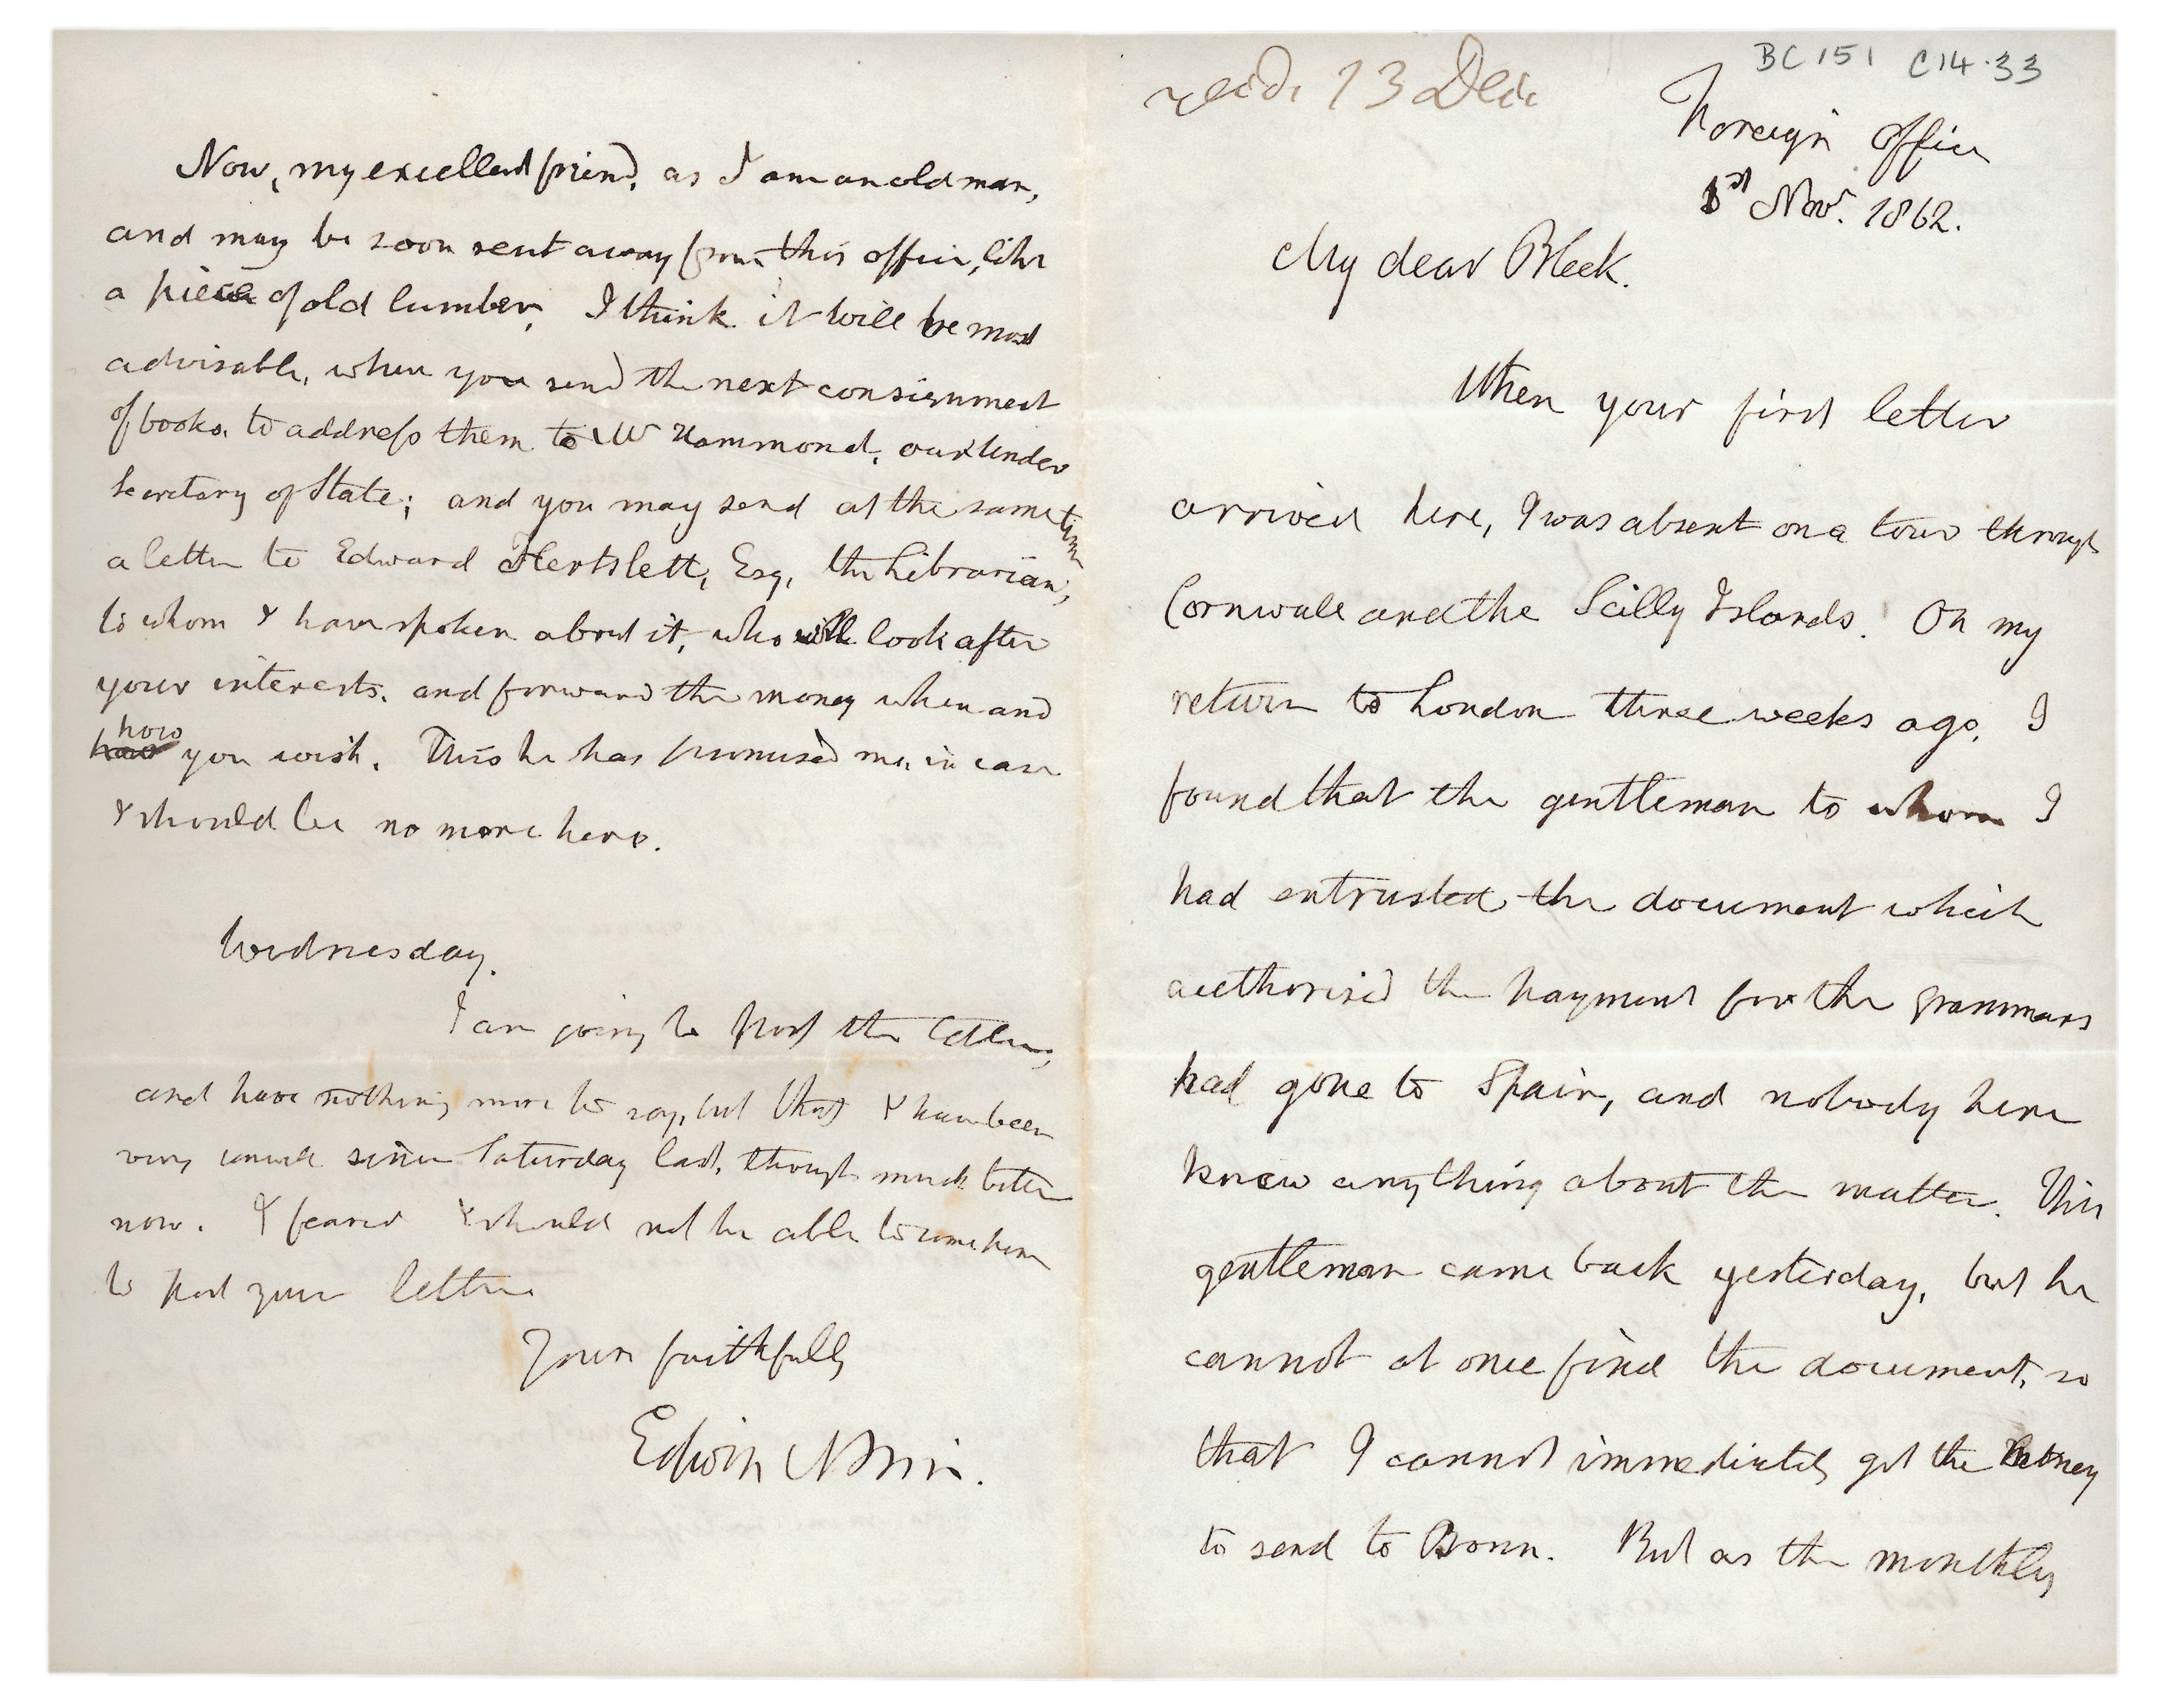 BC 151 C14.33
recd. 13 Dec.
Foreign Office
1st Nov. 1862.
My dear Bleek.
When your first letter
arrived here, I was absent on a tour through
Cornwall and the Scilly Islands. On my
return to London three weeks ago, I
found that the gentleman to whom I
had entrusted the document which
authorised the payment for the grammars
had gone to Spain, and nobody here
knew anything about the matter. This
gentleman came back yesterday, but he
cannot at once find the document, so
that I cannot immediately get the money
to send to Bonn. But as the monthly
Now, my excellent friend, as I am an old man,
and may be soon sent away from this office, like
a piece of old lumber, I think it will be most
advisable, when you send the next consignment
of books, to address them to Mr Hammond, our Under
Secretary of State; and you may send at the same time
a letter to Edward Hertslett, Esq, the Librarian,
to whom I have spoken about it, who will look after
your interests, and forward the money when and
how you wish. This he has promised me, in case
I should be no more here.
Wednesday.
I am going to post the letter,
and have nothing more to say, but that I have been
very unwell since Saturday last, though much better
now. I feared I should not be able to come here
to post your letter.
Yours faithfully
Edwin Norris.